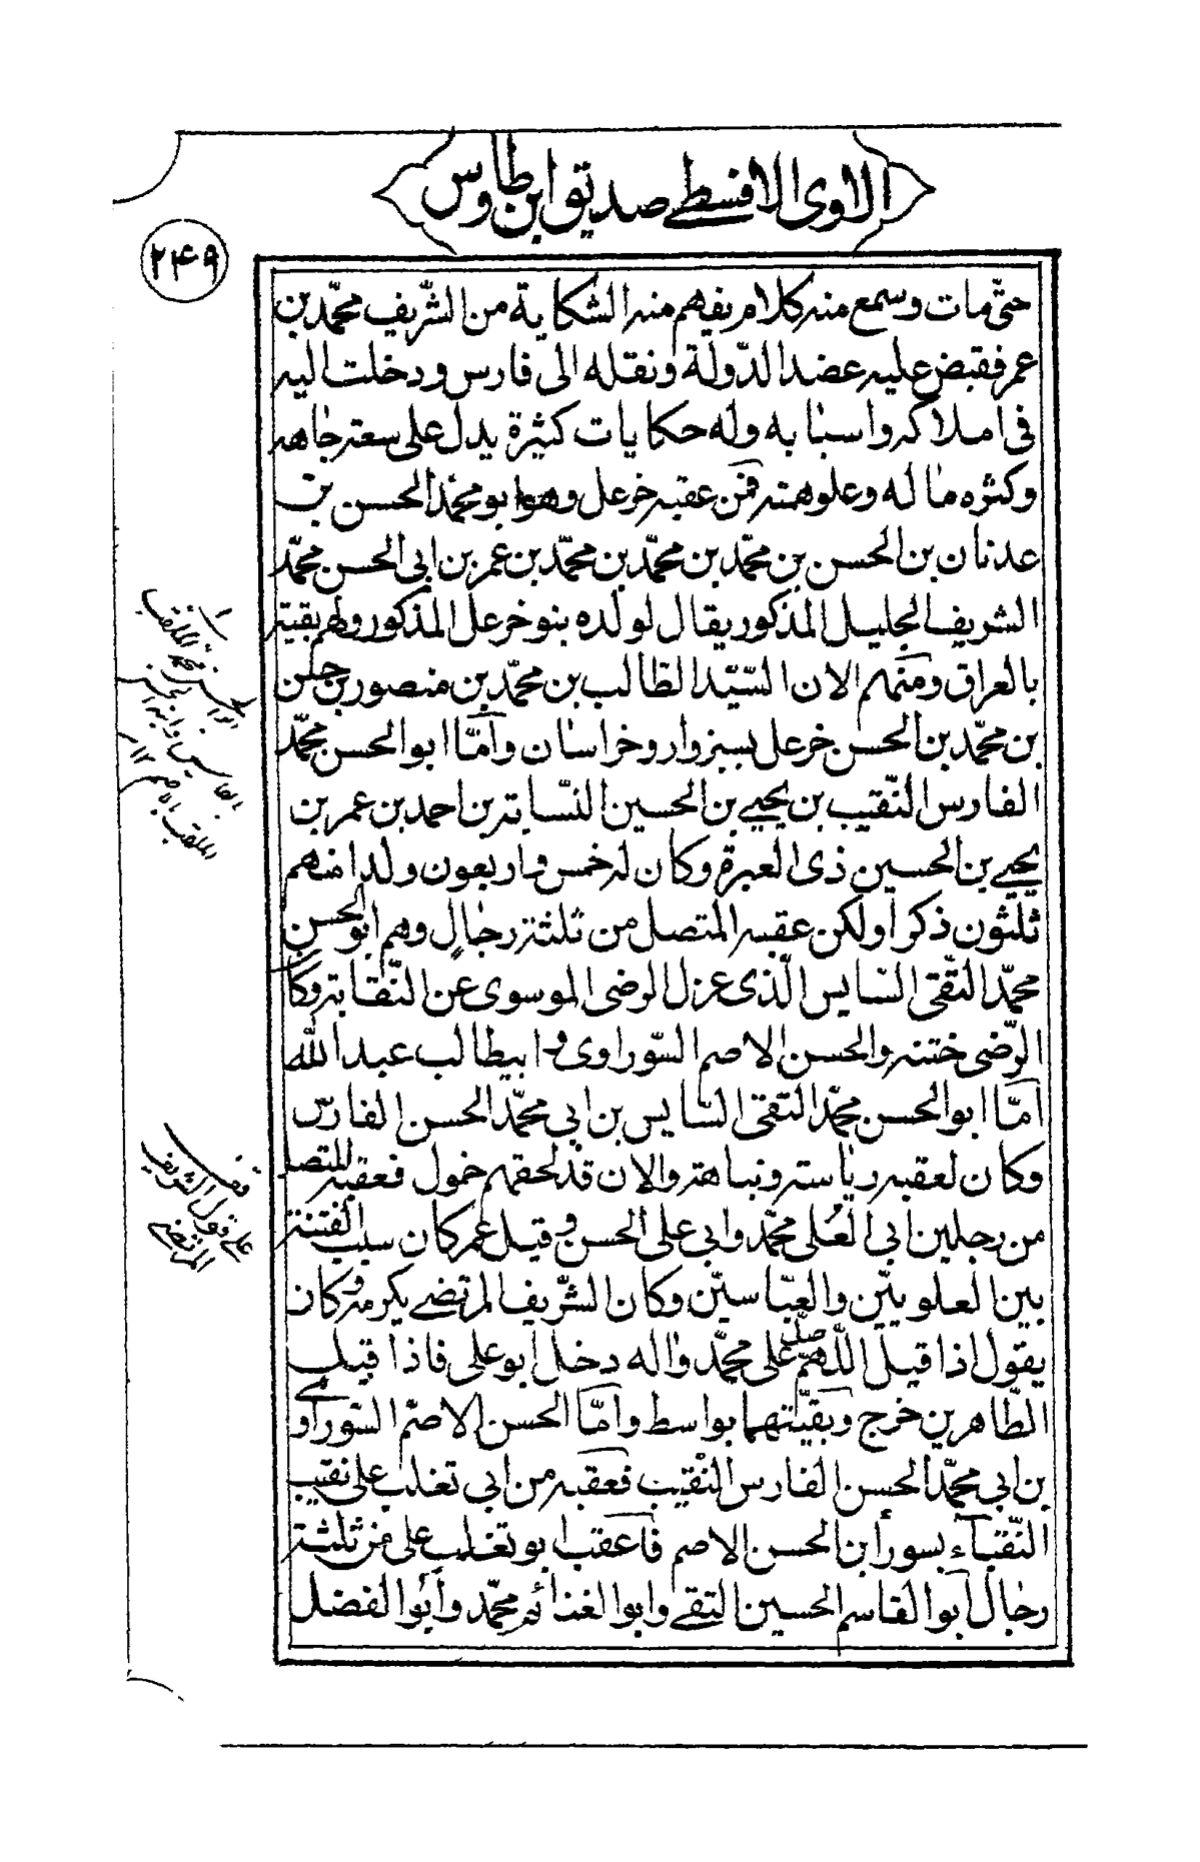 الاوى الافسطے صديق ابن طاوس
۲۴۹
حتّى مات وسمع منه كلام يفهم منه الشكاية من الشّريف محمّد بن
عمر فقبض عليه عضد الدّولة ونقله الى فارس ودخلت اليد
فى املاكه واسبابه وله حكايات كثيرة يدل على سعة جاهه
وكثره ماله وعلو همته فمن عقبه خزعل وهو ابو محمّد الحسن بن
عدنان بن الحسن بن محمّد بن محمّد بن محمّد بن عمر بن ابى الحسن محمّد
الشريف الجليل المذكور يقال لولده بنو خزعل المذكور ولهم بقية
بالعراق ومنهم الان السّيّد الطالب بن محمّد بن منصور بن حسن
بن محمّد بن الحسن خزعل بسبزوار وخراسان وامّا ابو الحسن محمّد
الفارس النّقيب بن يحيى بن الحسين النسّابة بن احمد بن عمر بن
يحيى بن الحسين ذى العبرة وكان له خمس واربعون ولدا منهم
ثلثون ذكرا ولكن عقبه المتصل من ثلثة رجال وهم ابو الحسن
محمّد التّقى السّابس الّذى عزل الرضى الموسوى عن النّقابة وكان
الرّضى ختنه والحسن الاصم السّوراوى و ابيطالب عبد الله
امّا ابو الحسن محمّد التقى السّابس بن ابى محمّد الحسن الفارس
وكان لعقبه رياسة ونباهة والان قد لحقهم خمول فعقبه المتصل
من رجلين ابى العُلى محمّد وابى على الحسن و قيل عمر كان سبب الفتنة
بين العلويين والعبّاسيّن وكان الشّريف المرتضے يكرمه وكان
يقول اذا قيل اللّهمّ صلّ على محمّد واله دخل ابو على فاذا قيل
الطّاهرين خرج وبقيّتهما بواسط وامّا الحسن الاصمّ السّوراوى
بن ابى محمّد الحسن الفارس النّقيب فعقبه من ابى تغلب على نقيب
النّقباء بسورا بن الحسن الاصم فاعقب ابو تغلب على من ثلثة
رجال ابو القاسم الحسين التقے وابو الغنائم محمّد وابو الفضل
على قول الشريف
المرتضے